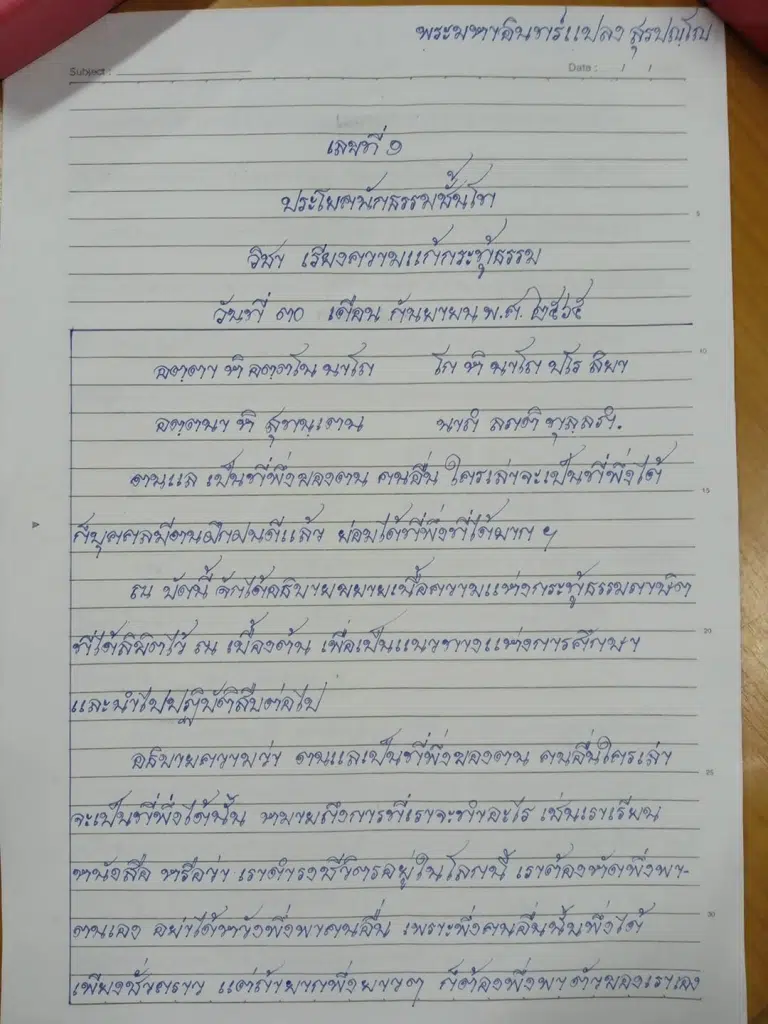 พระมหาอินทร์แปลง สุรปญฺโญ
Subject :
Date : / /
เลขที่ ๑
ประโยคนักธรรมชั้นโท
วิชา เรียงความแก้กระทู้ธรรม
วันที่ ๓๐ เดือน กันยายน พ.ศ. ๒๕๖๕
5
อตฺตา หิ อตฺตโน นาโถ โก หิ นาโถ ปโร สิยา
10
อตฺตนา หิ สุทนฺเตน นาถํ ลภติ ทุลฺลภํ.
ตนแล เป็นที่พึ่งของตน คนอื่น ใครเล่าจะเป็นที่พึ่งได้
15
ก็บุคคลมีตนฝึกฝนดีแล้ว ย่อมได้ที่พึ่งที่ได้ยาก ฯ
ณ บัดนี้ จักได้อธิบายขยายเนื้อความแห่งกระทู้ธรรมภาษิต
ที่ได้ลิขิตไว้ ณ เบื้องต้น เพื่อเป็นแนวทางแห่งการศึกษา
20
และนำไปปฏิบัติสืบต่อไป
อธิบายความว่า ตนแลเป็นที่พึ่งของตน คนอื่นใครเล่า
25
จะเป็นที่พึ่งได้นั้น หมายถึงการที่เราจะทำอะไร เช่นเราเรียน
หนังสือ หรือว่า เราดำรงชีวิตรอยู่ในโลกนี้ เราต้องหัดพึ่งพา-
ตนเอง อย่าได้หวังพึ่งพาคนอื่น เพราะพึ่งคนอื่นนั้นพึ่งได้
30
เพียงชั่วคราว แต่ถ้าหากพึ่งยาวๆ ก็ต้องพึ่งพาตัวของเราเอง